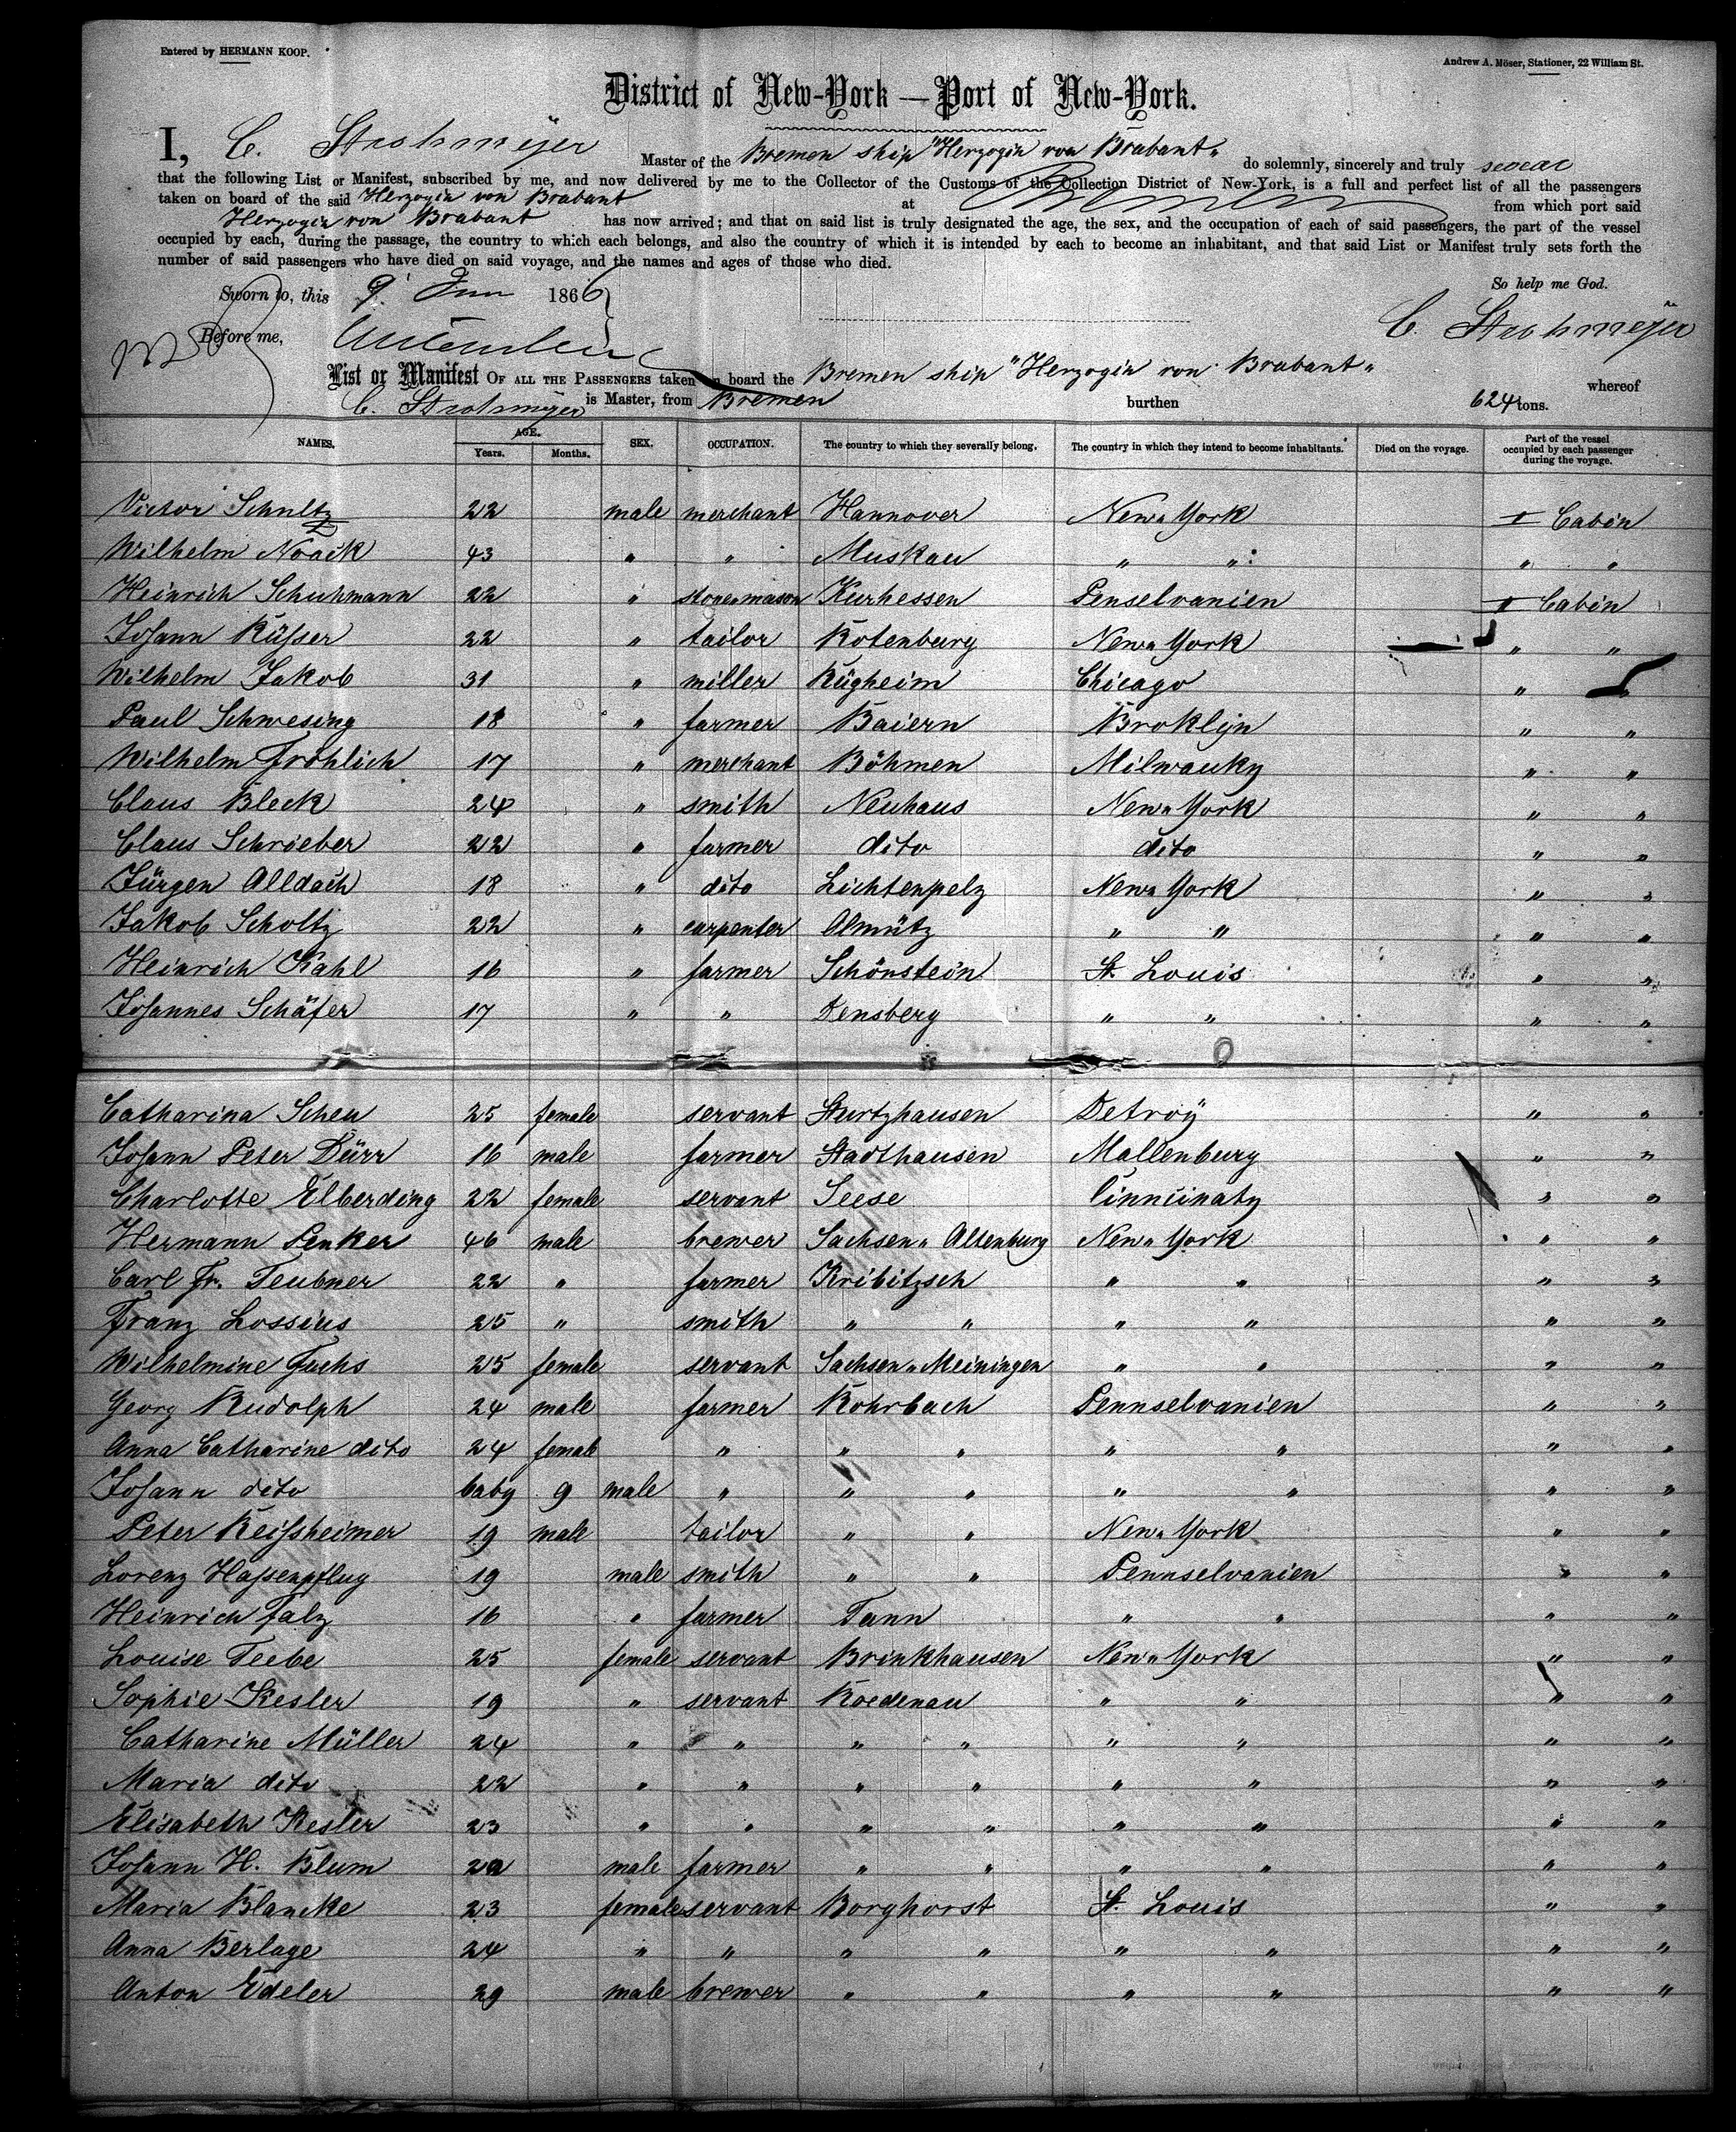 Entered by HERMANN KOOP.
Andrew A. Möser, Stationer, 22 William St.
District of New-York — Port of New-York.
I, C. Strohmeÿer Master of the Bremen ship "Herzogin von Brabant" do solemnly, sincerely and truly swear
that the following List or Manifest, subscribed by me, and now delivered by me to the Collector of the Customs of the Collection District of New-York, is a full and perfect list of all the passengers
taken on board of the said Herzogin von Brabant at Bremen from which port said
Herzogin von Brabant has now arrived; and that on said list is truly designated the age, the sex, and the occupation of each of said passengers, the part of the vessel
occupied by each, during the passage, the country to which each belongs, and also the country of which it is intended by each to become an inhabitant, and that said List or Manifest truly sets forth the
number of said passengers who have died on said voyage, and the names and ages of those who died.
So help me God.
Sworn to, this 9 Jun 1866
C. Strohmeÿer
Before me,
List or Manifest OF ALL THE PASSENGERS taken on board the Bremen ship "Herzogin von Brabant" whereof
C. Strohmeÿer is Master, from Bremen burthen 624 tons.
NAMES. AGE. Years. Months. SEX. OCCUPATION. The country to which they severally belong. The country in which they intend to become inhabitants. Died on the voyage. Part of the vessel occupied by each passenger during the voyage.
Victor Schultz 22 male merchant Hannover New York I Cabin
Wilhelm Noack 43 " " Muskau " " " "
Heinrich Schuhmann 22 " stone mason Kurhessen Penselvanien II Cabin
Johann Küsser 22 " tailor Rotenburg New York " "
Wilhelm Jakob 31 " miller Rügheim Chicago " "
Paul Schwesing 18 " farmer Baiern Broklijn " "
Wilhelm Fröhlich 17 " merchant Böhmen Milwauky " "
Claus Bleck 24 " smith Neuhaus New York " "
Claus Schrieber 22 " farmer dito dito " "
Jürgen Alldach 18 " dito Lichtenpelz New York " "
Jakob Scholtz 22 " carpenter Olmütz " " " "
Heinrich Kahl 16 " farmer Schönstein St. Louis " "
Johannes Schäfer 17 " " Densberg " " " "
Catharina Scheu 25 female servant Sturtzhausen Detroÿ " "
Johann Peter Dürr 16 male farmer Stadthausen Mallenburg " "
Charlotte Elberding 22 female servant Seese Cinncinaty " "
Hermann Penker 46 male brewer Sachsen Altenburg New York " "
Carl Fr. Teubner 22 " farmer Kribitzsch " " " "
Franz Lossius 25 " smith " " " " " "
Wilhelmine Fuchs 25 female servant Sachsen Meiningen " " " "
Georg Rudolph 24 male farmer Rohrbach Pennselvanien " "
Anna Catharine dito 24 female " " " " " " "
Johann dito baby 9 male " " " " " " "
Peter Reissheimer 19 male tailor " " New York " "
Lorenz Hassenpflug 19 male smith " " Pennselvanien " "
Heinrich Falz 16 " farmer Tann " " " "
Louise Teebe 25 female servant Brinkhausen New York " "
Sophie Kesler 19 " servant Roedenau " " " "
Catharine Müller 24 " " " " " " " "
Maria dito 22 " " " " " " " "
Elisabeth Kesler 23 " " " " " " " "
Johann H. Blum male farmer " " " " " "
Maria Blancke 23 female servant Borghorst St. Louis " "
Anna Berlage 24 " " " " " " " "
Anton Edeler 29 male brewer " " " " " "